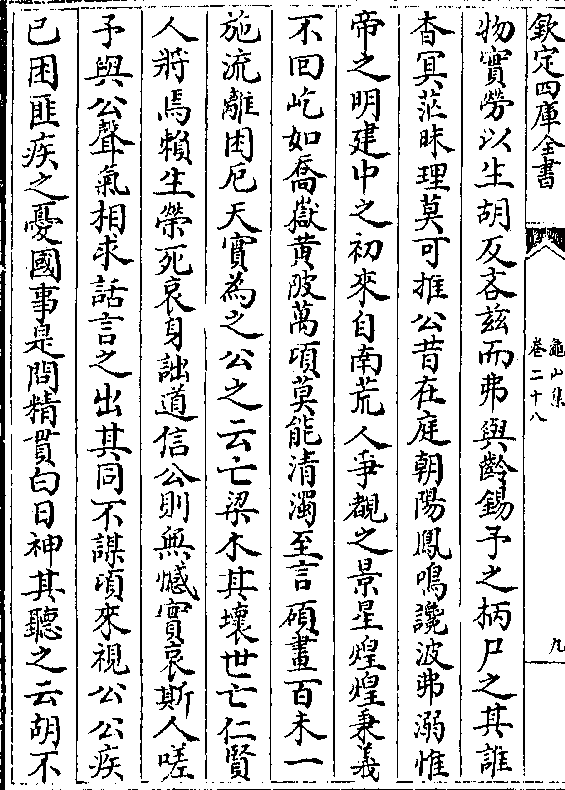 欽定四庫全書
龜山集
卷二十八
九
物實勞以生胡反吝兹而弗與齡錫予之柄尸之其誰
杳冥茫昧理莫可推公昔在庭朝陽鳳鳴讒波弗溺惟
帝之明建中之初來自南荒人爭覩之景星煌煌秉義
不回屹如喬嶽黄陂萬頃莫能清濁至言碩畫百未一
施流離困厄天實為之公之云亡梁木其壊世亡仁賢
人將焉賴生榮死哀身詘道信公則無憾實哀斯人嗟
予與公聲氣相求話言之出其同不謀頃來視公公疾
已困匪疾之憂國事是問精貫白日神其聽之云胡不